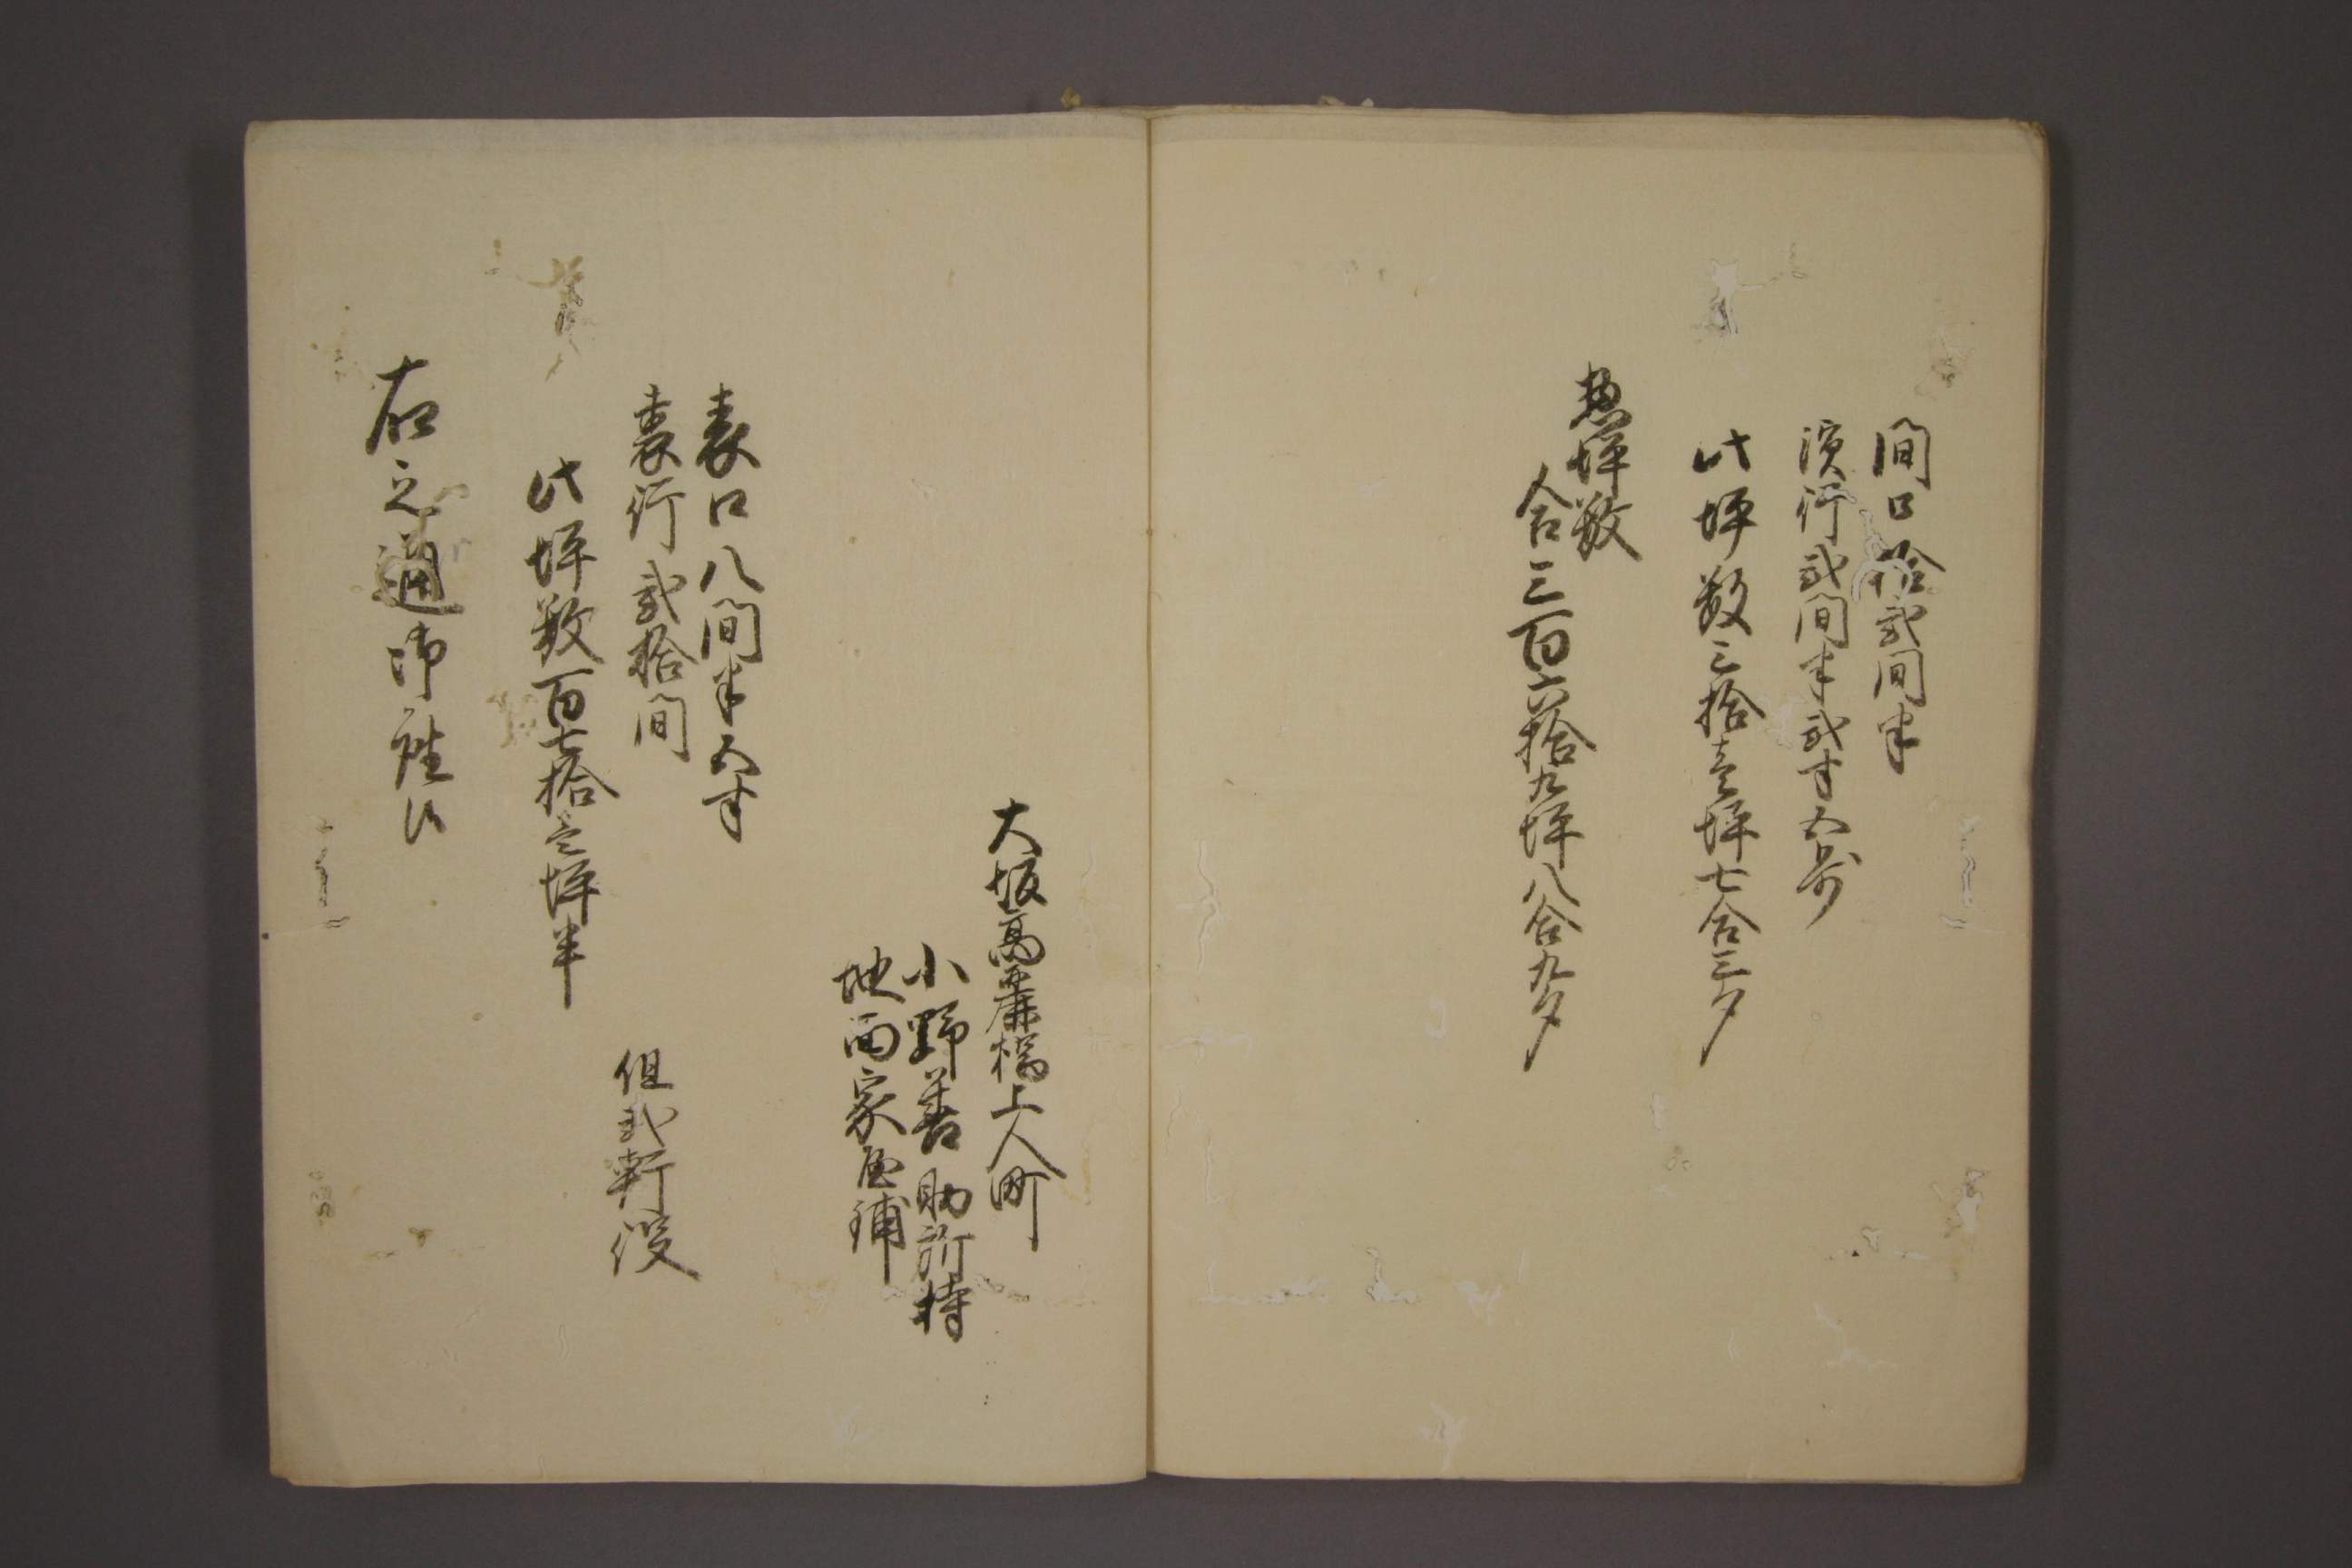 間口拾弐間半
濱行弐間半弐寸五歩
此坪数三拾壱坪七合三夕
惣坪数
合三百六拾九坪八合九夕
大坂高麗橋上人町
小野善助所持
地面家屋鋪
表口八間半五寸
裏行弐拾間
但弐軒役
此坪数百七拾壱坪半
右之通御座候